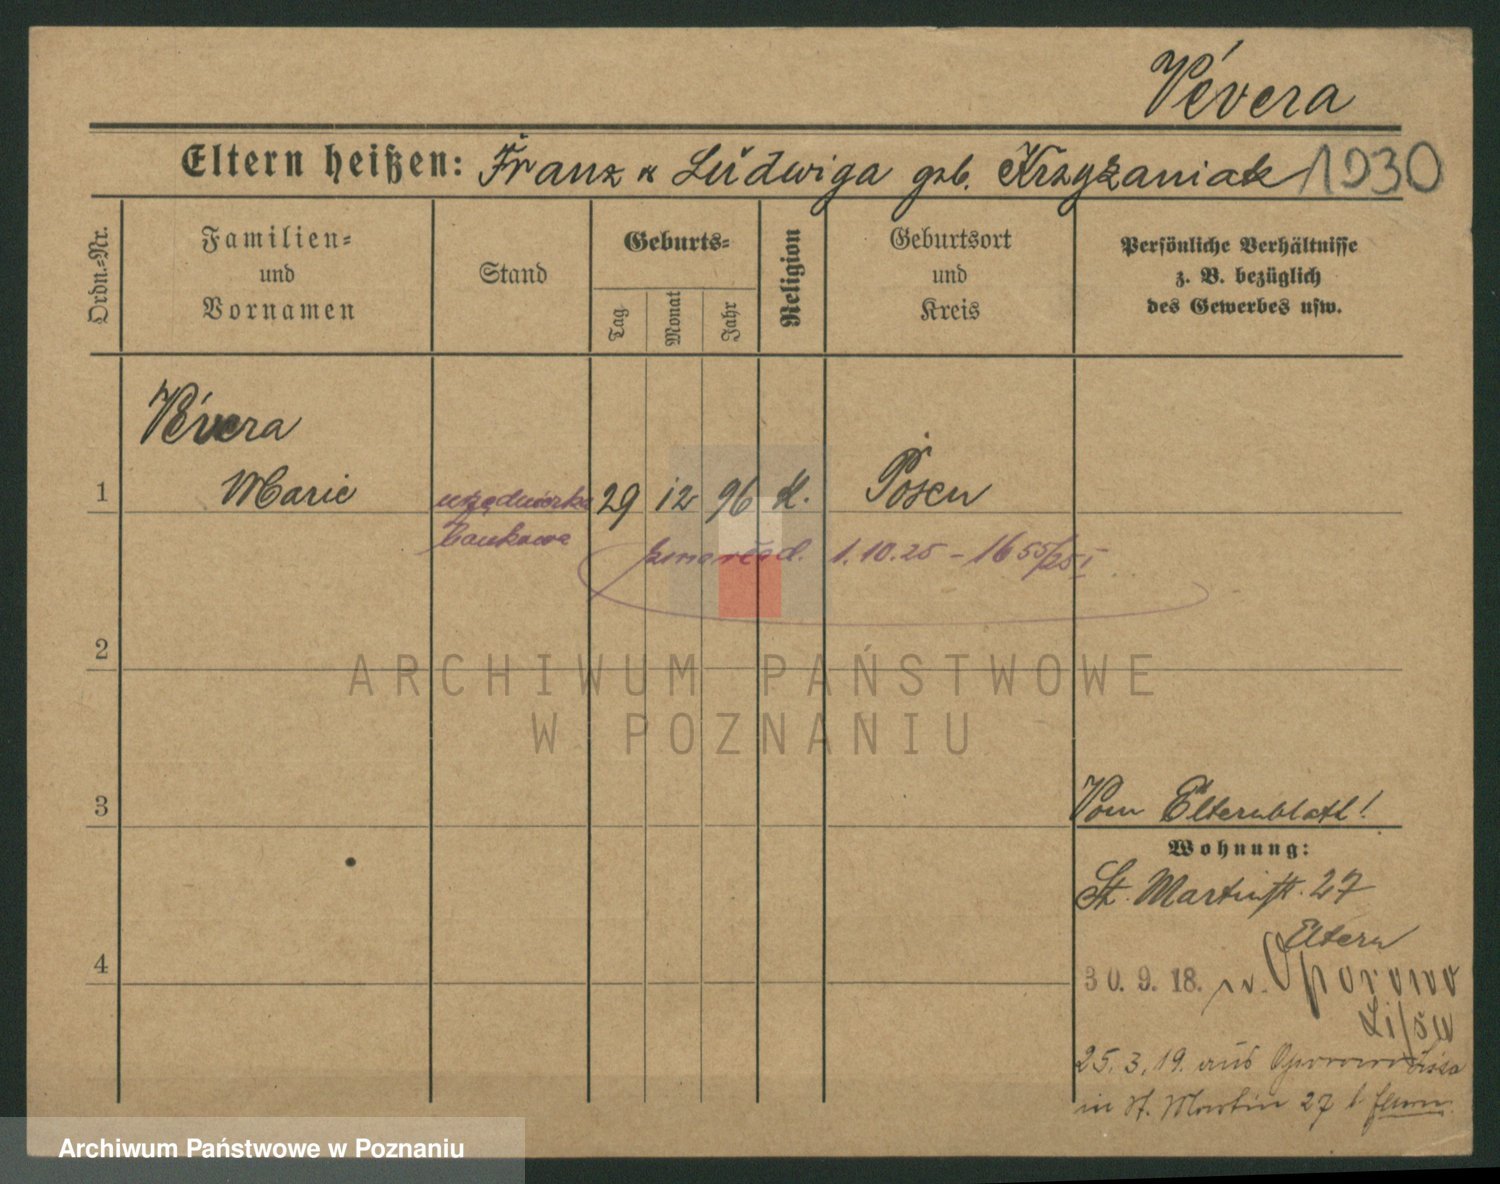 Vévera
Eltern heißen: Franz u Ludwiga geb. Krzyżaniak 1930
Ordn.-Nr.
Familien-
und
Vornamen
Stand
Geburts-
Tag
Monat
Jahr
Religion
Geburtsort
und
Kreis
Persönliche Verhältnisse
z. B. bezüglich
des Gewerbes usw.
Vévera
1 Marie urzędniczka 29 12 96 k. Posen
bankowa
zmarła d. 1.10.25 - 1655/25 I
2
ARCHIWUM PAŃSTWOWE
W POZNANIU
3
Vom Elternblatt!
Wohnung:
St. Martinstr. 27
Eltern
4
30. 9. 18. n. Oporowo
Lissa
25. 3. 19. aus Oporowo Lissa
in St. Martin 27 b
Archiwum Państwowe w Poznaniu